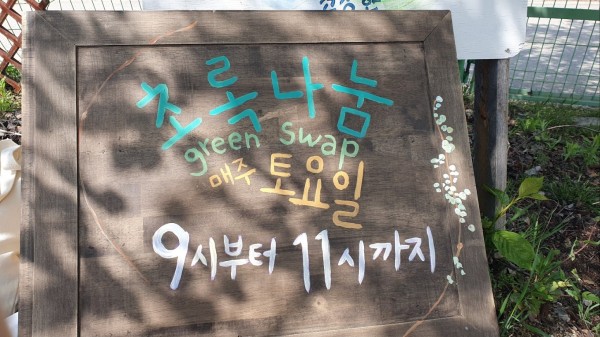 초록나눔
green swap
매주 토요일
9시부터 11시까지